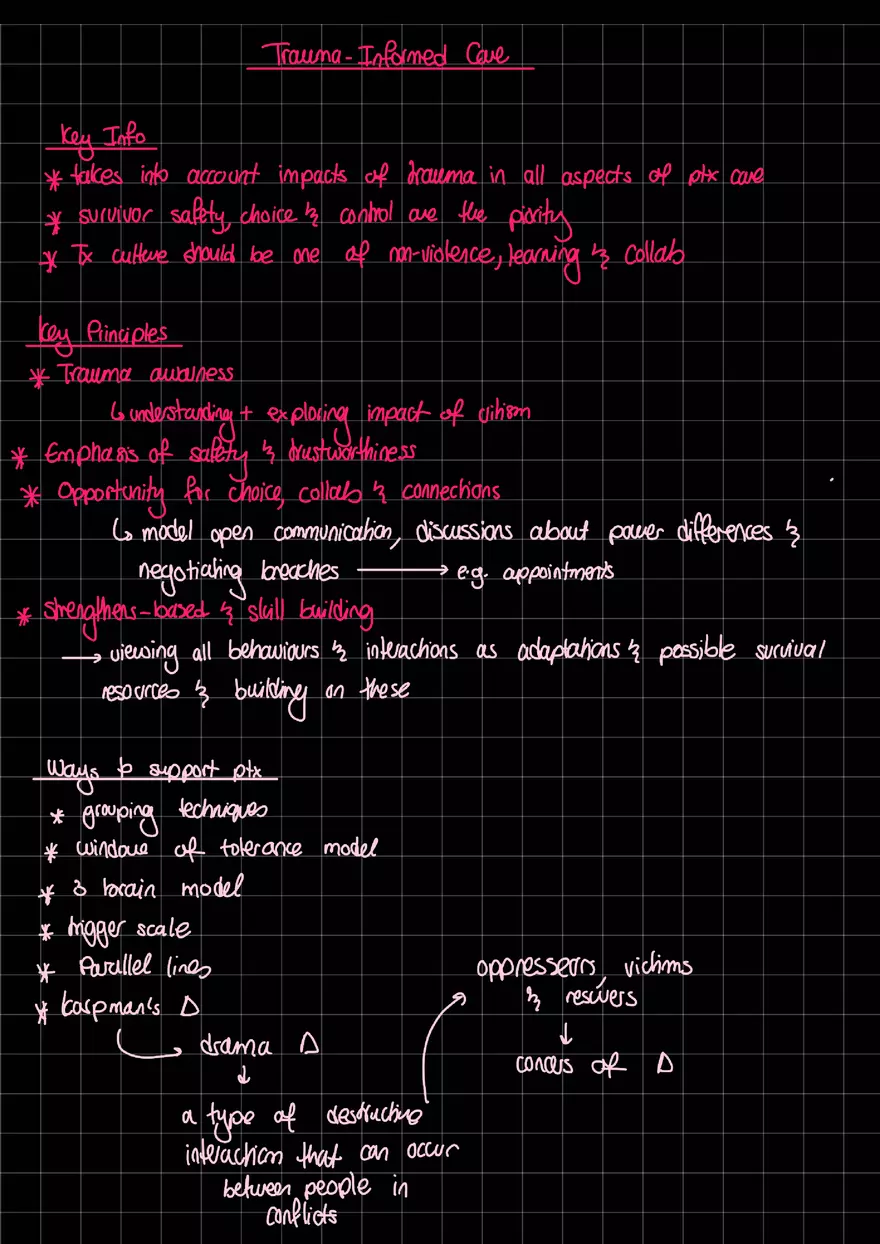 Trauma-Informed Care
Key Info
* takes into account impacts of trauma in all aspects of ptx care
* survivor safety, choice & control are the piority
* Tx culture should be one of non-violence, learning & collab
Key Principles
* Trauma awarness
↳ understanding + exploring impact of
* Emphasis of safety & trustworthiness
* Opportunity for choice, collab & connections
↳ model open communication, discussions about power differences &
negotiating breaches → e.g. appointments
* strengthens-based & skill building
→ viewing all behaviours & interactions as adaptations & possible survival
resources & building on these
Ways to support ptx
* grouping techniques
* windowe of tolerance model
* 3 brain model
* trigger scale
* Parallel lines
* karpman's Δ
oppressers, victims
& rescuers
↓
corners of Δ
drama Δ
↓
a type of destructive
interaction that can occur
between people in
conflicts